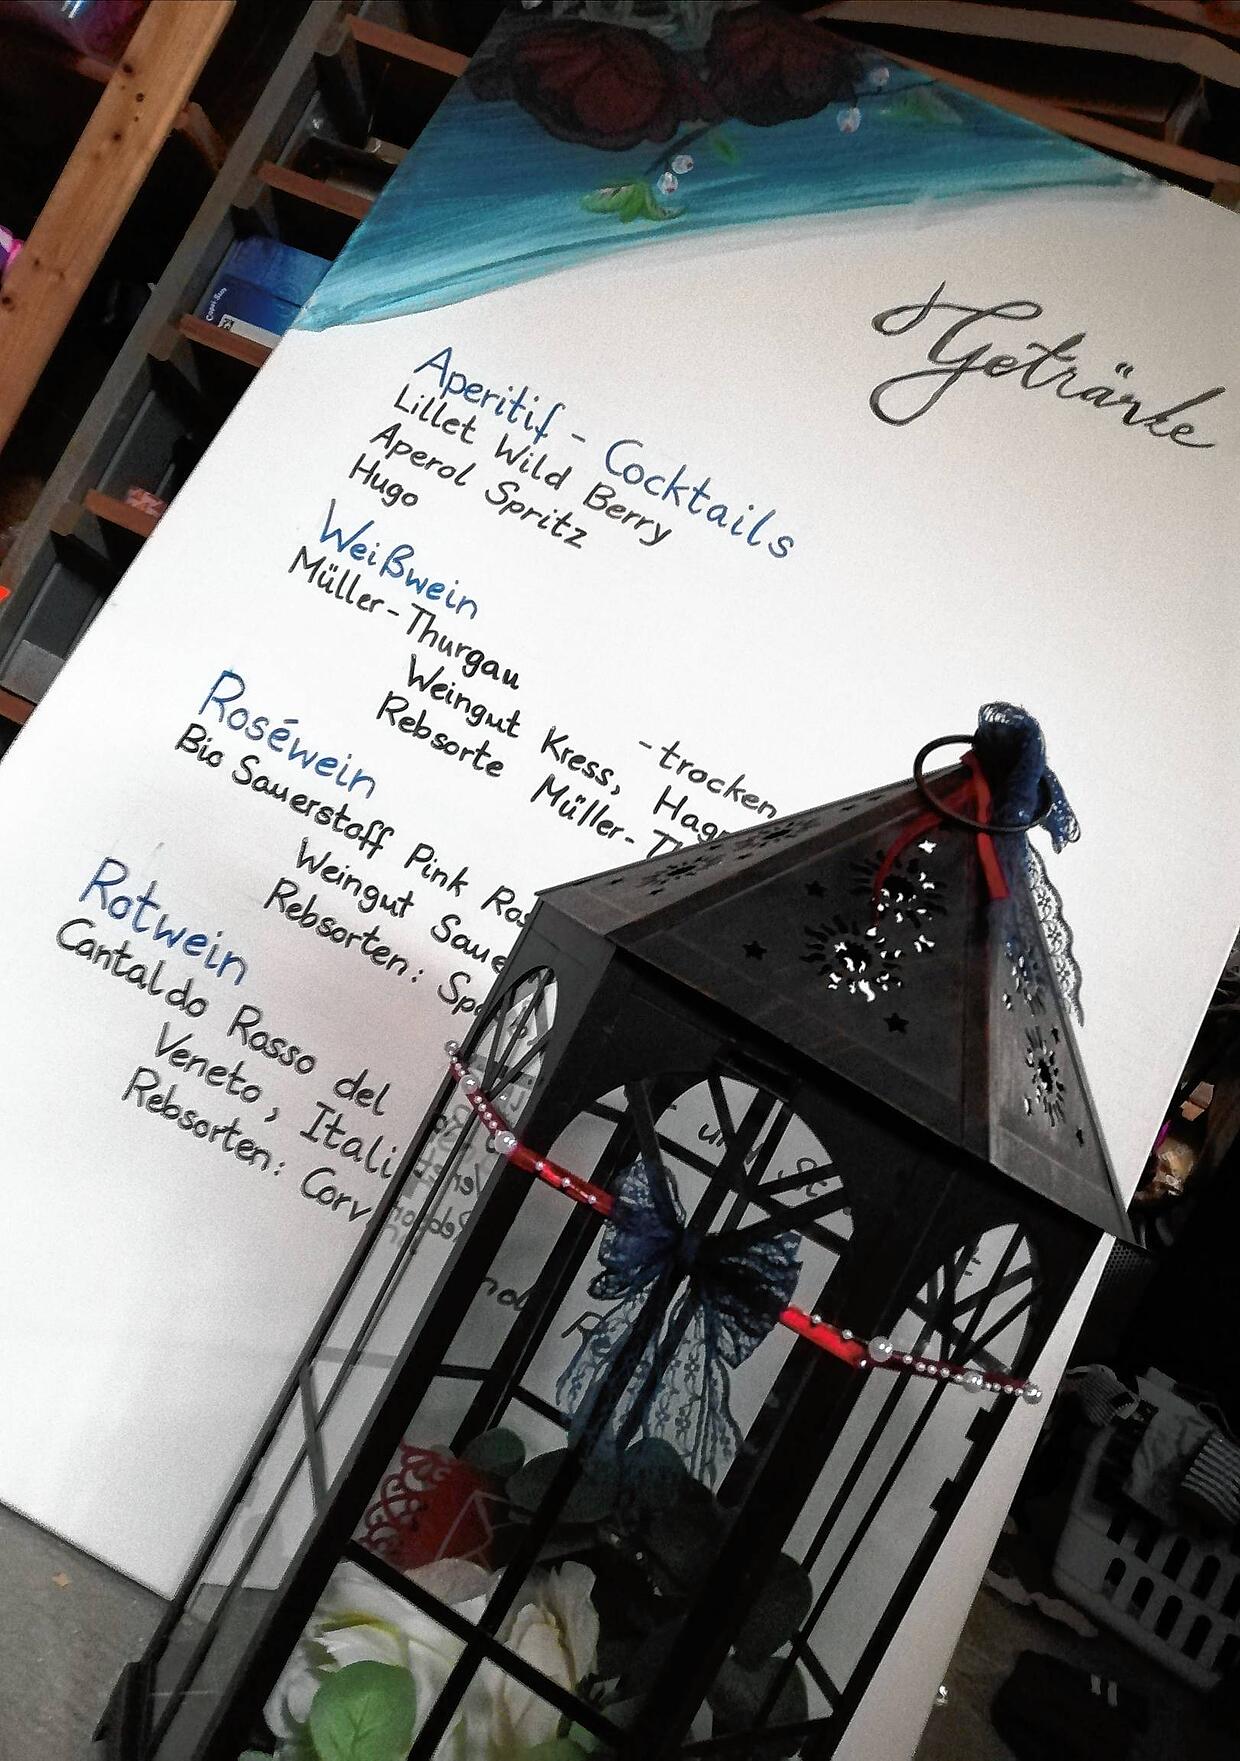 Getränke
Aperitif - Cocktails
Lillet Wild Berry
Aperol Spritz
Hugo
Weißwein
Müller-Thurgau
-trocken
Weingut Kress,
Rebsorte Müller-
Roséwein
Bio Sauerstoff Pink
Weingut
Rebsorten:
Rotwein
Cantaldo Rosso del
Veneto,
Rebsorten: